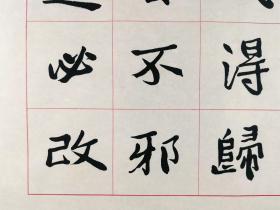 得歸
不邪
必改